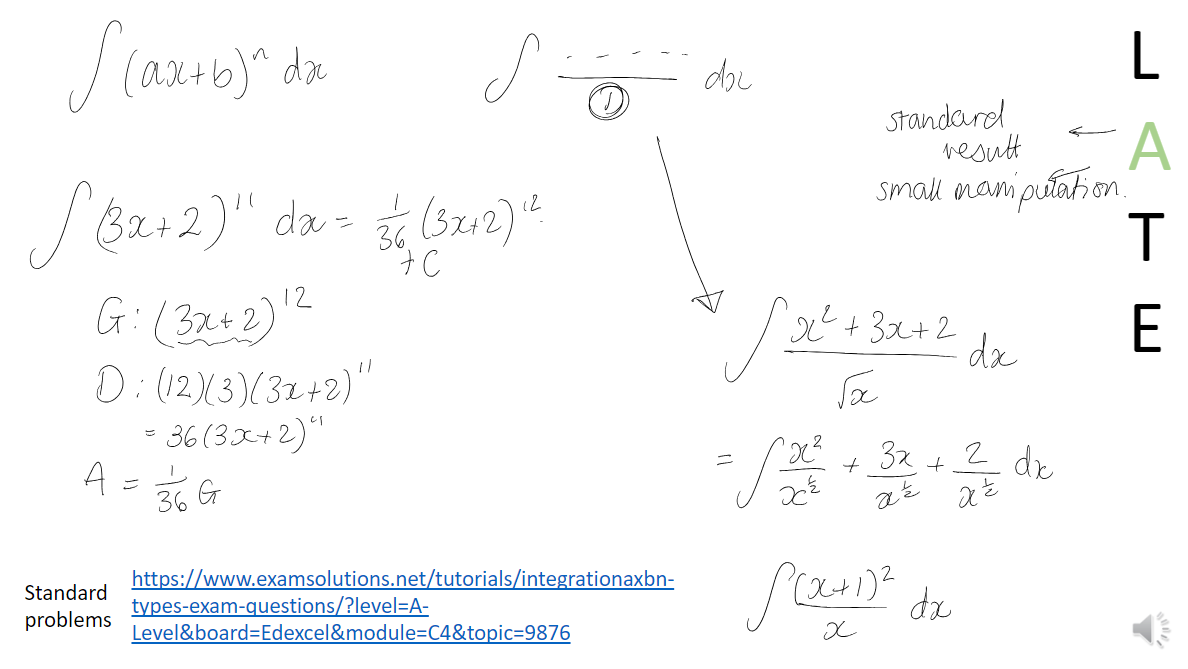 ∫ (ax+b)^n dx
∫ ----- / 1 dx
L
A
T
E
standard ←
result
small manipulation.
∫ (3x+2)^11 dx = 1/36 (3x+2)^12
+ C
G: (3x+2)^12
D: (12)(3)(3x+2)^11
= 36(3x+2)^11
A = 1/36 G
∫ (x² + 3x + 2)/√x dx
= ∫ x²/x^½ + 3x/x^½ + 2/x^½ dx
∫ (x+1)²/x dx
Standard
problems
https://www.examsolutions.net/tutorials/integrationaxbn-
types-exam-questions/?level=A-
Level&board=Edexcel&module=C4&topic=9876